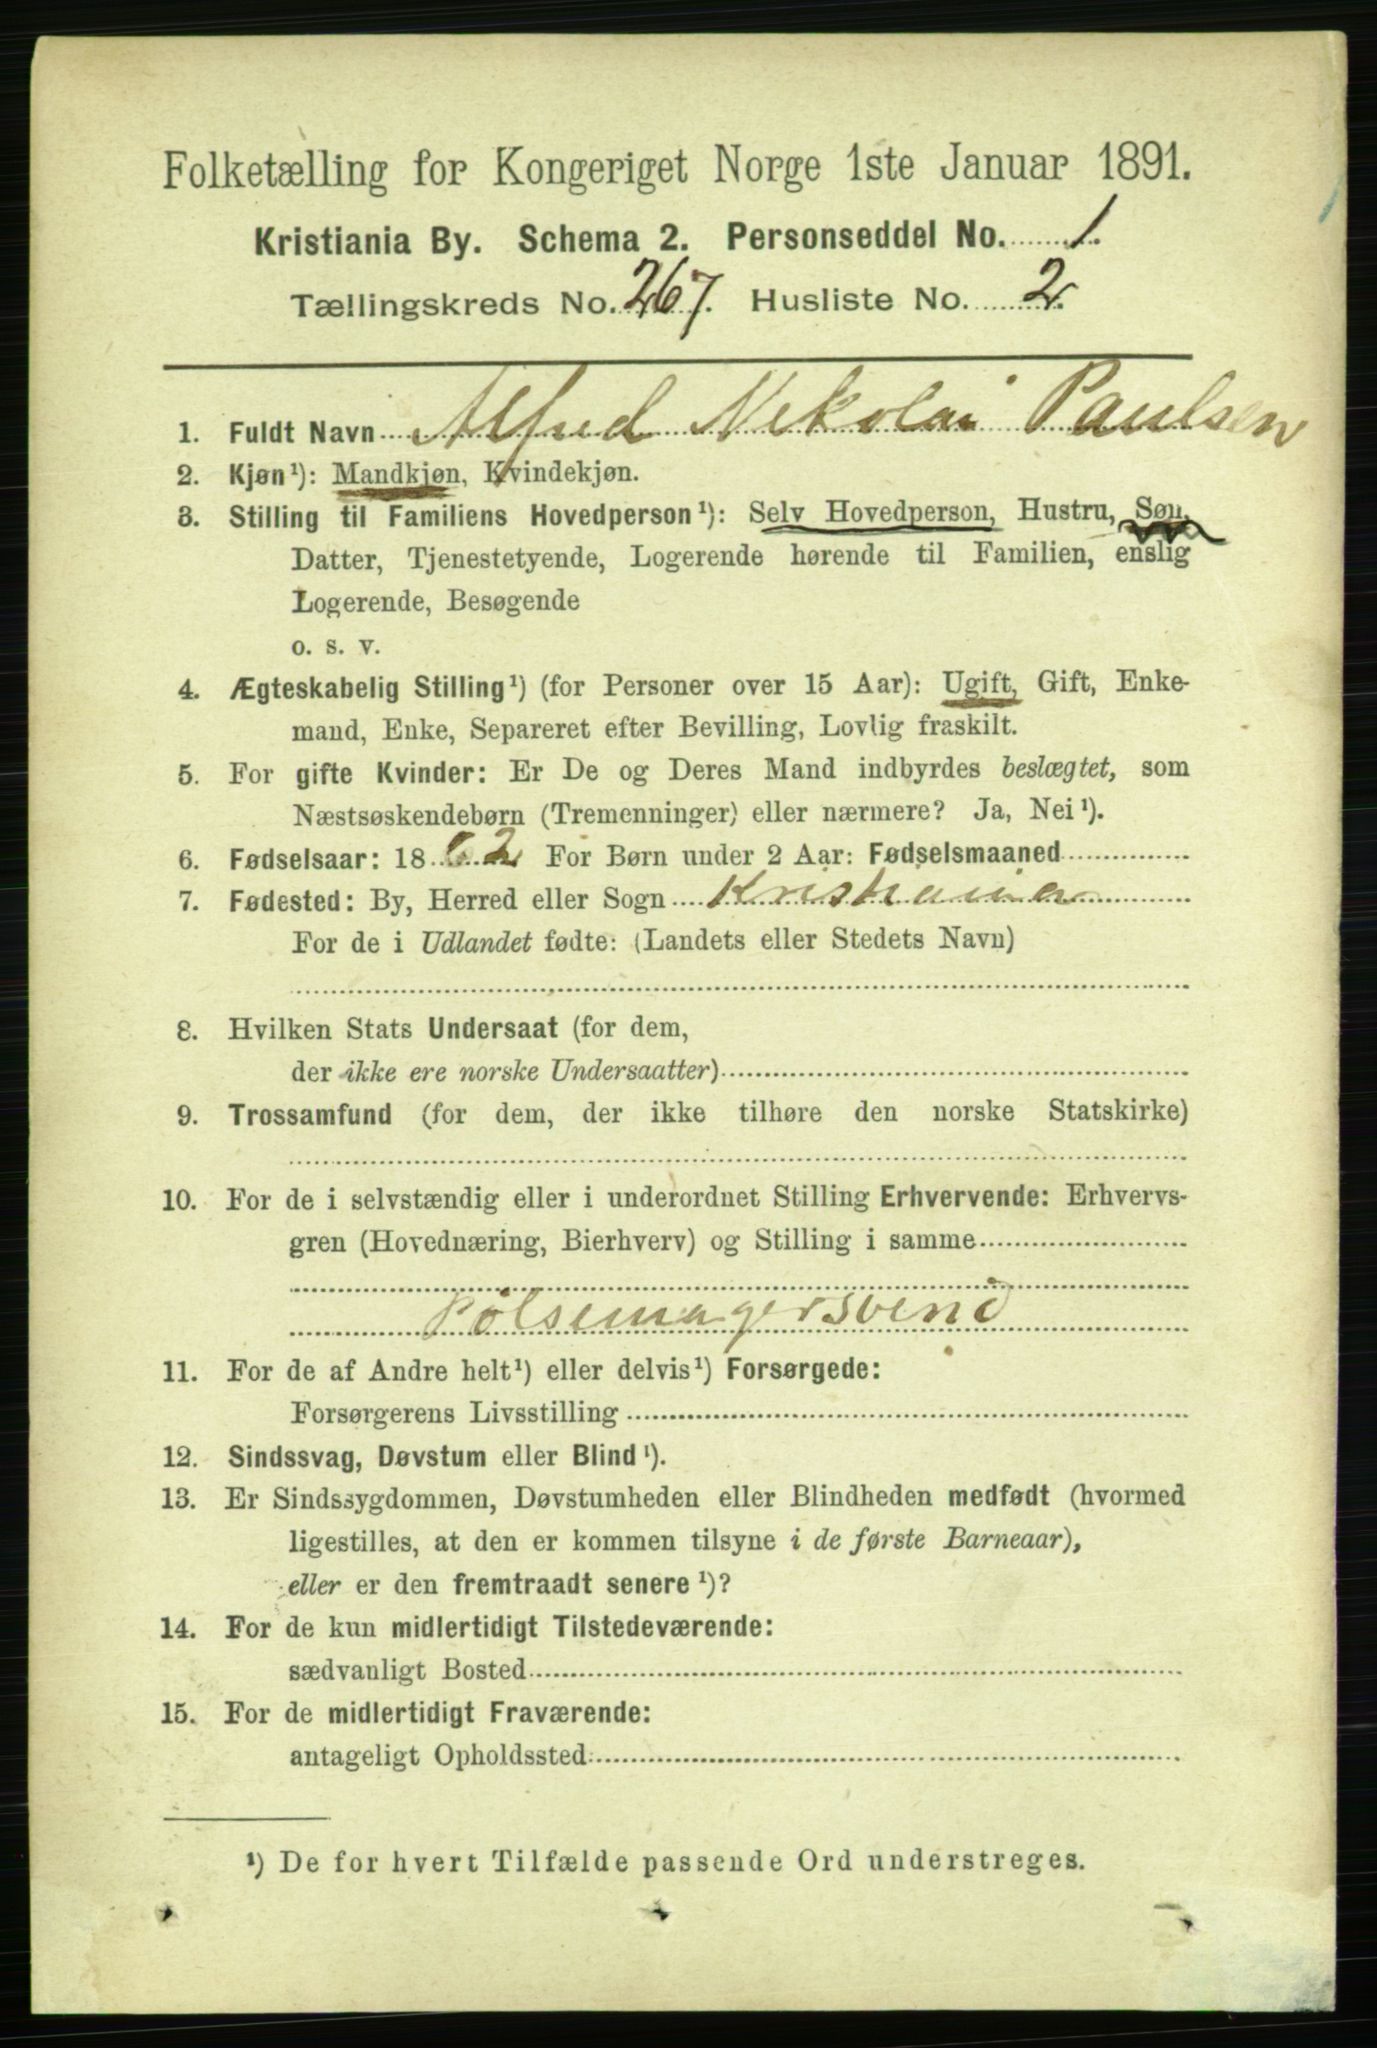 Folketælling for Kongeriget Norge 1ste Januar 1891.
Kristiania By. Schema 2. Personseddel No. 1.
Tællingskreds No. 267. Husliste No. 2.
1. Fuldt Navn Alfred Nikolai Paulsen
2. Kjøn¹): Mandkjøn, Kvindekjøn.
3. Stilling til Familiens Hovedperson¹): Selv Hovedperson, Hustru, Søn,
Datter, Tjenestetyende, Logerende hørende til Familien, enslig
Logerende, Besøgende
o. s. v.
4. Ægteskabelig Stilling¹) (for Personer over 15 Aar): Ugift, Gift, Enke-
mand, Enke, Separeret efter Bevilling, Lovlig fraskilt.
5. For gifte Kvinder: Er De og Deres Mand indbyrdes beslægtet, som
Næstsøskendebørn (Tremenninger) eller nærmere? Ja, Nei¹).
6. Fødselsaar: 1862 For Børn under 2 Aar: Fødselsmaaned
7. Fødested: By, Herred eller Sogn Kristiania
For de i Udlandet fødte: (Landets eller Stedets Navn)
8. Hvilken Stats Undersaat (for dem,
der ikke ere norske Undersaatter)
9. Trossamfund (for dem, der ikke tilhøre den norske Statskirke)
10. For de i selvstændig eller i underordnet Stilling Erhvervende: Erhvervs-
gren (Hovednæring, Bierhverv) og Stilling i samme
Pølsemagersvend
11. For de af Andre helt¹) eller delvis¹) Forsørgede:
Forsørgerens Livsstilling
12. Sindssvag, Døvstum eller Blind¹).
13. Er Sindssygdommen, Døvstumheden eller Blindheden medfødt (hvormed
ligestilles, at den er kommen tilsyne i de første Barneaar),
eller er den fremtraadt senere¹)?
14. For de kun midlertidigt Tilstedeværende:
sædvanligt Bosted
15. For de midlertidigt Fraværende:
antageligt Opholdssted
¹) De for hvert Tilfælde passende Ord understreges.